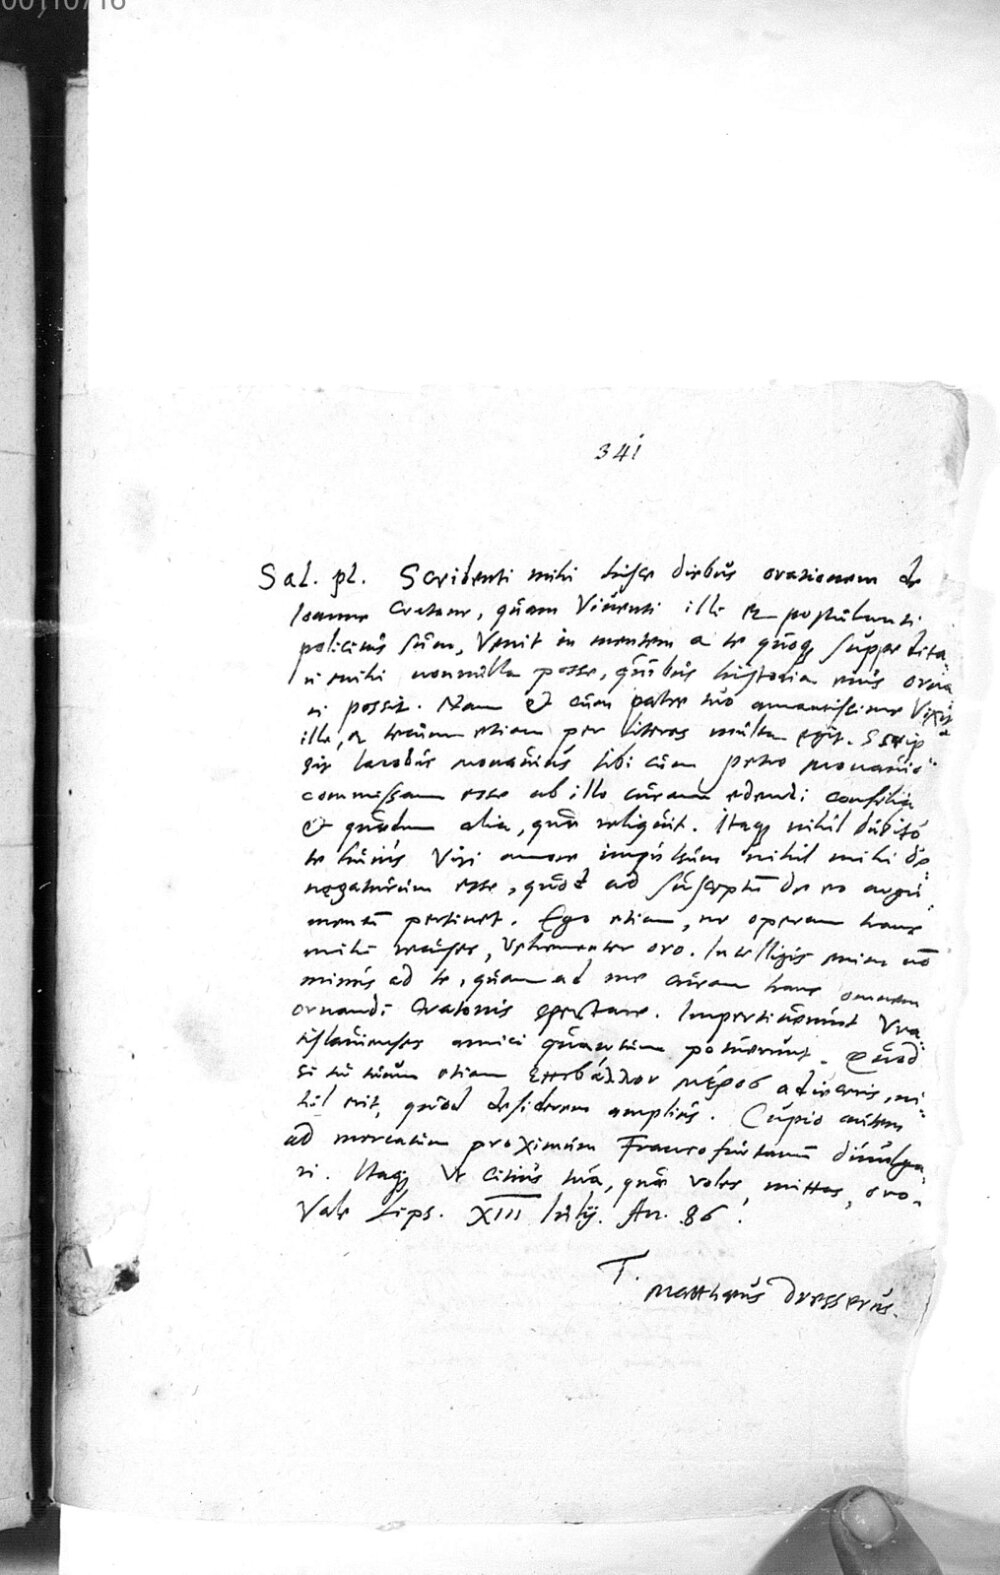 00110716
341
Sal. pl. Scribenti mihi hisce diebus orationem de
Ioanne Cratone, quam Viventi illi et postulanti
pollicitus sum, Venit in mentem a te quoq suppedita-
ri mihi nonnulla posse, quibus historia eius orna
ri possit. Nam et cum patre tuo amantissime Vixit
ille, et tecum etiam per literas multa egit. Scrip
sit Iacobus Monavius tibi cum Petro Monavio
commissam esse ab illo curam edendi consilia
et quædam alia, quæ reliquit. Itaq nihil dubito
te huius Viri amore impulsum nihil mihi de-
negaturum esse, quod ad susceptũ de eo argu-
mentũ pertinet. Ego etiam, ne operam hanc
mihi recuses, Vehementer oro. Intelligis enim nõ
minus ad te, quam ad me curam hanc omnem
ornandi Cratonis spectare. Impertiverunt Vra-
tislavienses amici quantum potuerunt. Quod
si tu tuum etiam ἐπιβάλλον μέρος adieceris, ni-
hil erit, quod desiderem amplius. Cupio autem
ad mercatum proximum Francofurtanũ divulga-
ri. Itaq Vt citius tua, quæ voles, mittas, oro.
Vale Lips. XIII Iulij. An. 86.
T.
Matthæus Dresserus.